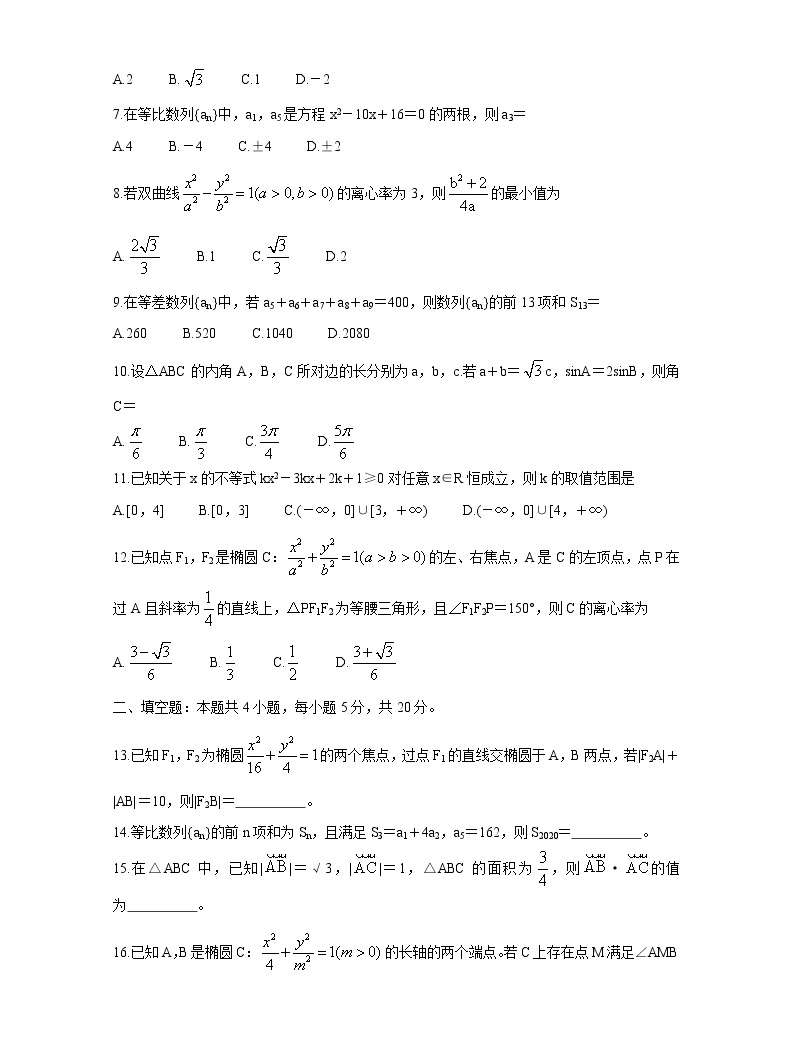 A.2 B. √3 C.1 D.－2
7.在等比数列{aₙ}中，a₁，a₅是方程 x²－10x＋16＝0 的两根，则 a₃＝
A.4 B.－4 C.±4 D.±2
8.若双曲线 x²/a² − y²/b² = 1(a > 0, b > 0) 的离心率为 3，则 (b² + 2)/(4a) 的最小值为
A. 2√3/3 B.1 C. √3/3 D.2
9.在等差数列{aₙ}中，若 a₅＋a₆＋a₇＋a₈＋a₉＝400，则数列{aₙ}的前 13 项和 S₁₃＝
A.260 B.520 C.1040 D.2080
10.设△ABC 的内角 A，B，C 所对边的长分别为 a，b，c.若 a＋b＝ √3 c，sinA＝2sinB，则角
C＝
A. π/6 B. π/3 C. 3π/4 D. 5π/6
11.已知关于 x 的不等式 kx²－3kx＋2k＋1≥0 对任意 x∈R 恒成立，则 k 的取值范围是
A.[0，4] B.[0，3] C.(－∞，0]∪[3，＋∞) D.(－∞，0]∪[4，＋∞)
12.已知点 F₁，F₂是椭圆 C： x²/a² + y²/b² = 1(a > b > 0) 的左、右焦点，A 是 C 的左顶点，点 P 在
过 A 且斜率为 1/4 的直线上，△PF₁F₂为等腰三角形，且∠F₁F₂P＝150°，则 C 的离心率为
A. (3−√3)/6 B. 1/3 C. 1/2 D. (3+√3)/6
二、填空题：本题共 4 小题，每小题 5 分，共 20 分。
13.已知 F₁，F₂为椭圆 x²/16 + y²/4 = 1 的两个焦点，过点 F₁的直线交椭圆于 A，B 两点，若|F₂A|＋
|AB|＝10，则|F₂B|＝__________。
14.等比数列{aₙ}的前 n 项和为 Sₙ，且满足 S₃＝a₁＋4a₂，a₅＝162，则 S₂₀₂₀＝__________。
15.在△ABC 中，已知|AB|＝√3，|AC|＝1，△ABC 的面积为 3/4，则 AB·AC 的值
为__________。
16.已知 A，B 是椭圆 C： x²/4 + y²/m² = 1(m > 0) 的长轴的两个端点。若 C 上存在点 M 满足∠AMB